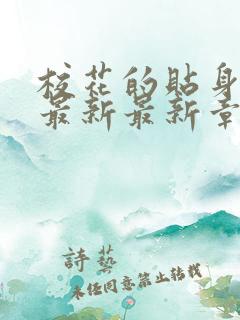 校花的贴身
最新最新章
詩藝
未经同意禁止转载